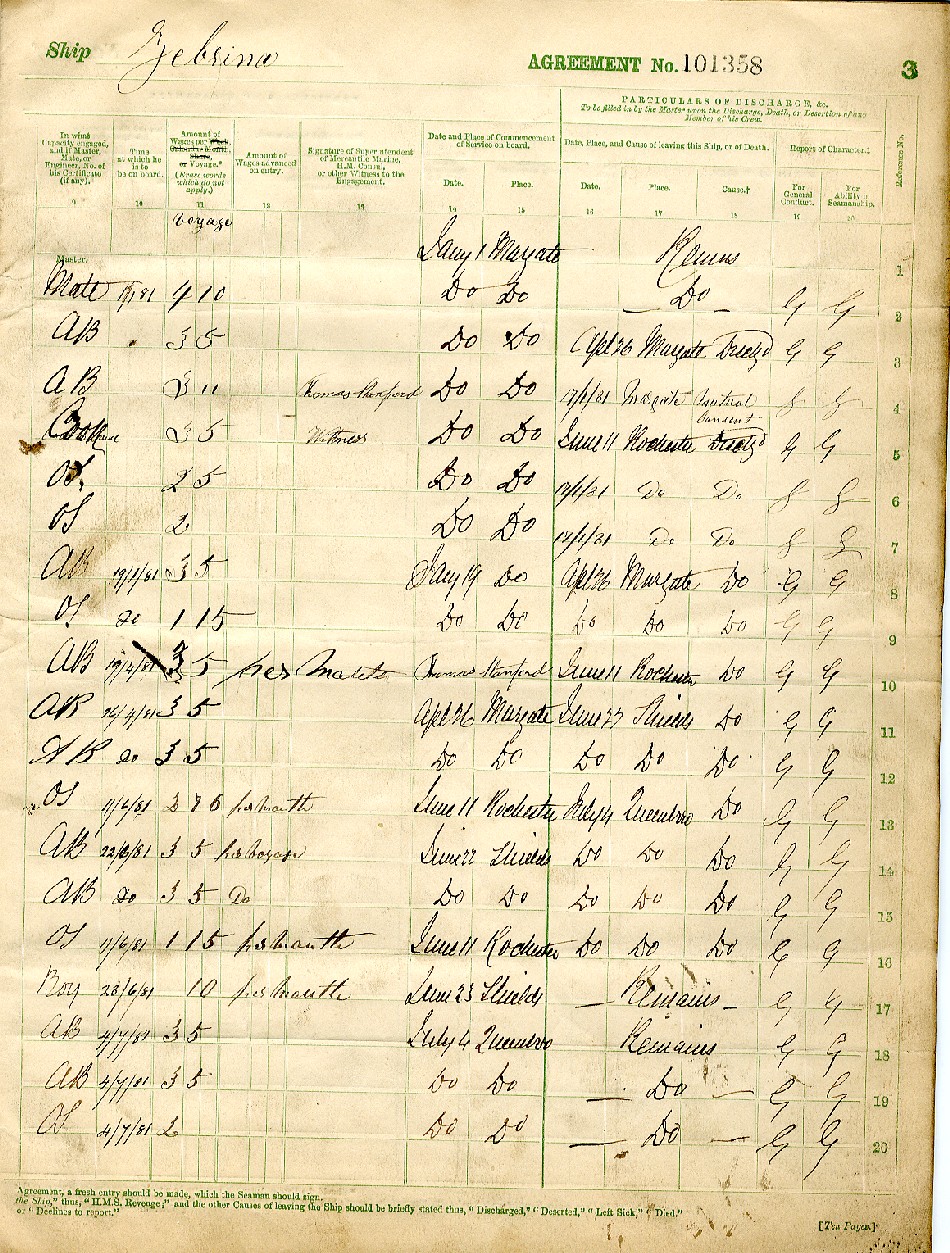 Ship Zebrina AGREEMENT No. 101358 3
PARTICULARS OF DISCHARGE, &c.
To be filled in by the Master upon the Discharge, Death, or Desertion of any Member of his Crew.
In what Capacity engaged, and if Master, Mate, or Engineer, No. of his Certificate (if any).
Time at which he is to be on board.
Amount of Wages per Week, Calendar Month, Share, or Voyage.* (Erase words which do not apply.)
Amount of Wages advanced on entry.
Signature of Superintendent of Mercantile Marine, H.M. Consul, or other Witness to the Engagement.
Date and Place of Commencement of Service on board.
Date, Place, and Cause of leaving this Ship, or of Death.
Report of Character.
Reference No.
Date. Place. Date. Place. Cause.† For General Conduct. For Ability in Seamanship.
9 10 11 12 13 14 15 16 17 18 19 20
Voyage
Master. Jany 1 Margate 1
Mate 4 10 Do Do Do G G 2
AB 3 5 Do Do Apl 26 Margate G G 3
AB 3 Thomas Stanford Do Do Margate Mutual Consent G G 4
3 5 Witness Do Do June 11 Rochester G G 5
OS 2 5 Do Do Do Do G G 6
OS 2 Do Do Do Do G G 7
AB 19/1/81 3 5 Jany 19 Do Apl 26 Margate Do G G 8
OS do 1 15 Do Do Do Do Do G G 9
AB 3 5 Thomas Stanford June 11 Rochester Do G G 10
AB 26/4/81 3 5 Apl 26 Margate June 23 Shields Do G G 11
AB do 3 5 Do Do Do Do Do G G 12
OS 11/6/81 2 per month June 11 Rochester July 4 Do G G 13
AB 22/6/81 3 5 per voyage June 22 Shields Do Do Do G G 14
AB do 3 5 Do Do Do Do Do Do G G 15
OS 11/6/81 1 15 per month June 11 Rochester Do Do Do G G 16
Boy 23/6/81 10 per month June 23 Shields Remains G G 17
AB 4/7/81 3 5 July 4 Remains G G 18
AB 4/7/81 3 5 Do Do Do G G 19
OS 4/7/81 2 Do Do Do G G 20
Agreement, a fresh entry should be made, which the Seaman should sign.
the Ship," thus, "H.M.S. Revenge," and the other Causes of leaving the Ship should be briefly stated thus, "Discharged," "Deserted," "Left Sick," "Died."
or "Declines to report."
[Ten Pages.]